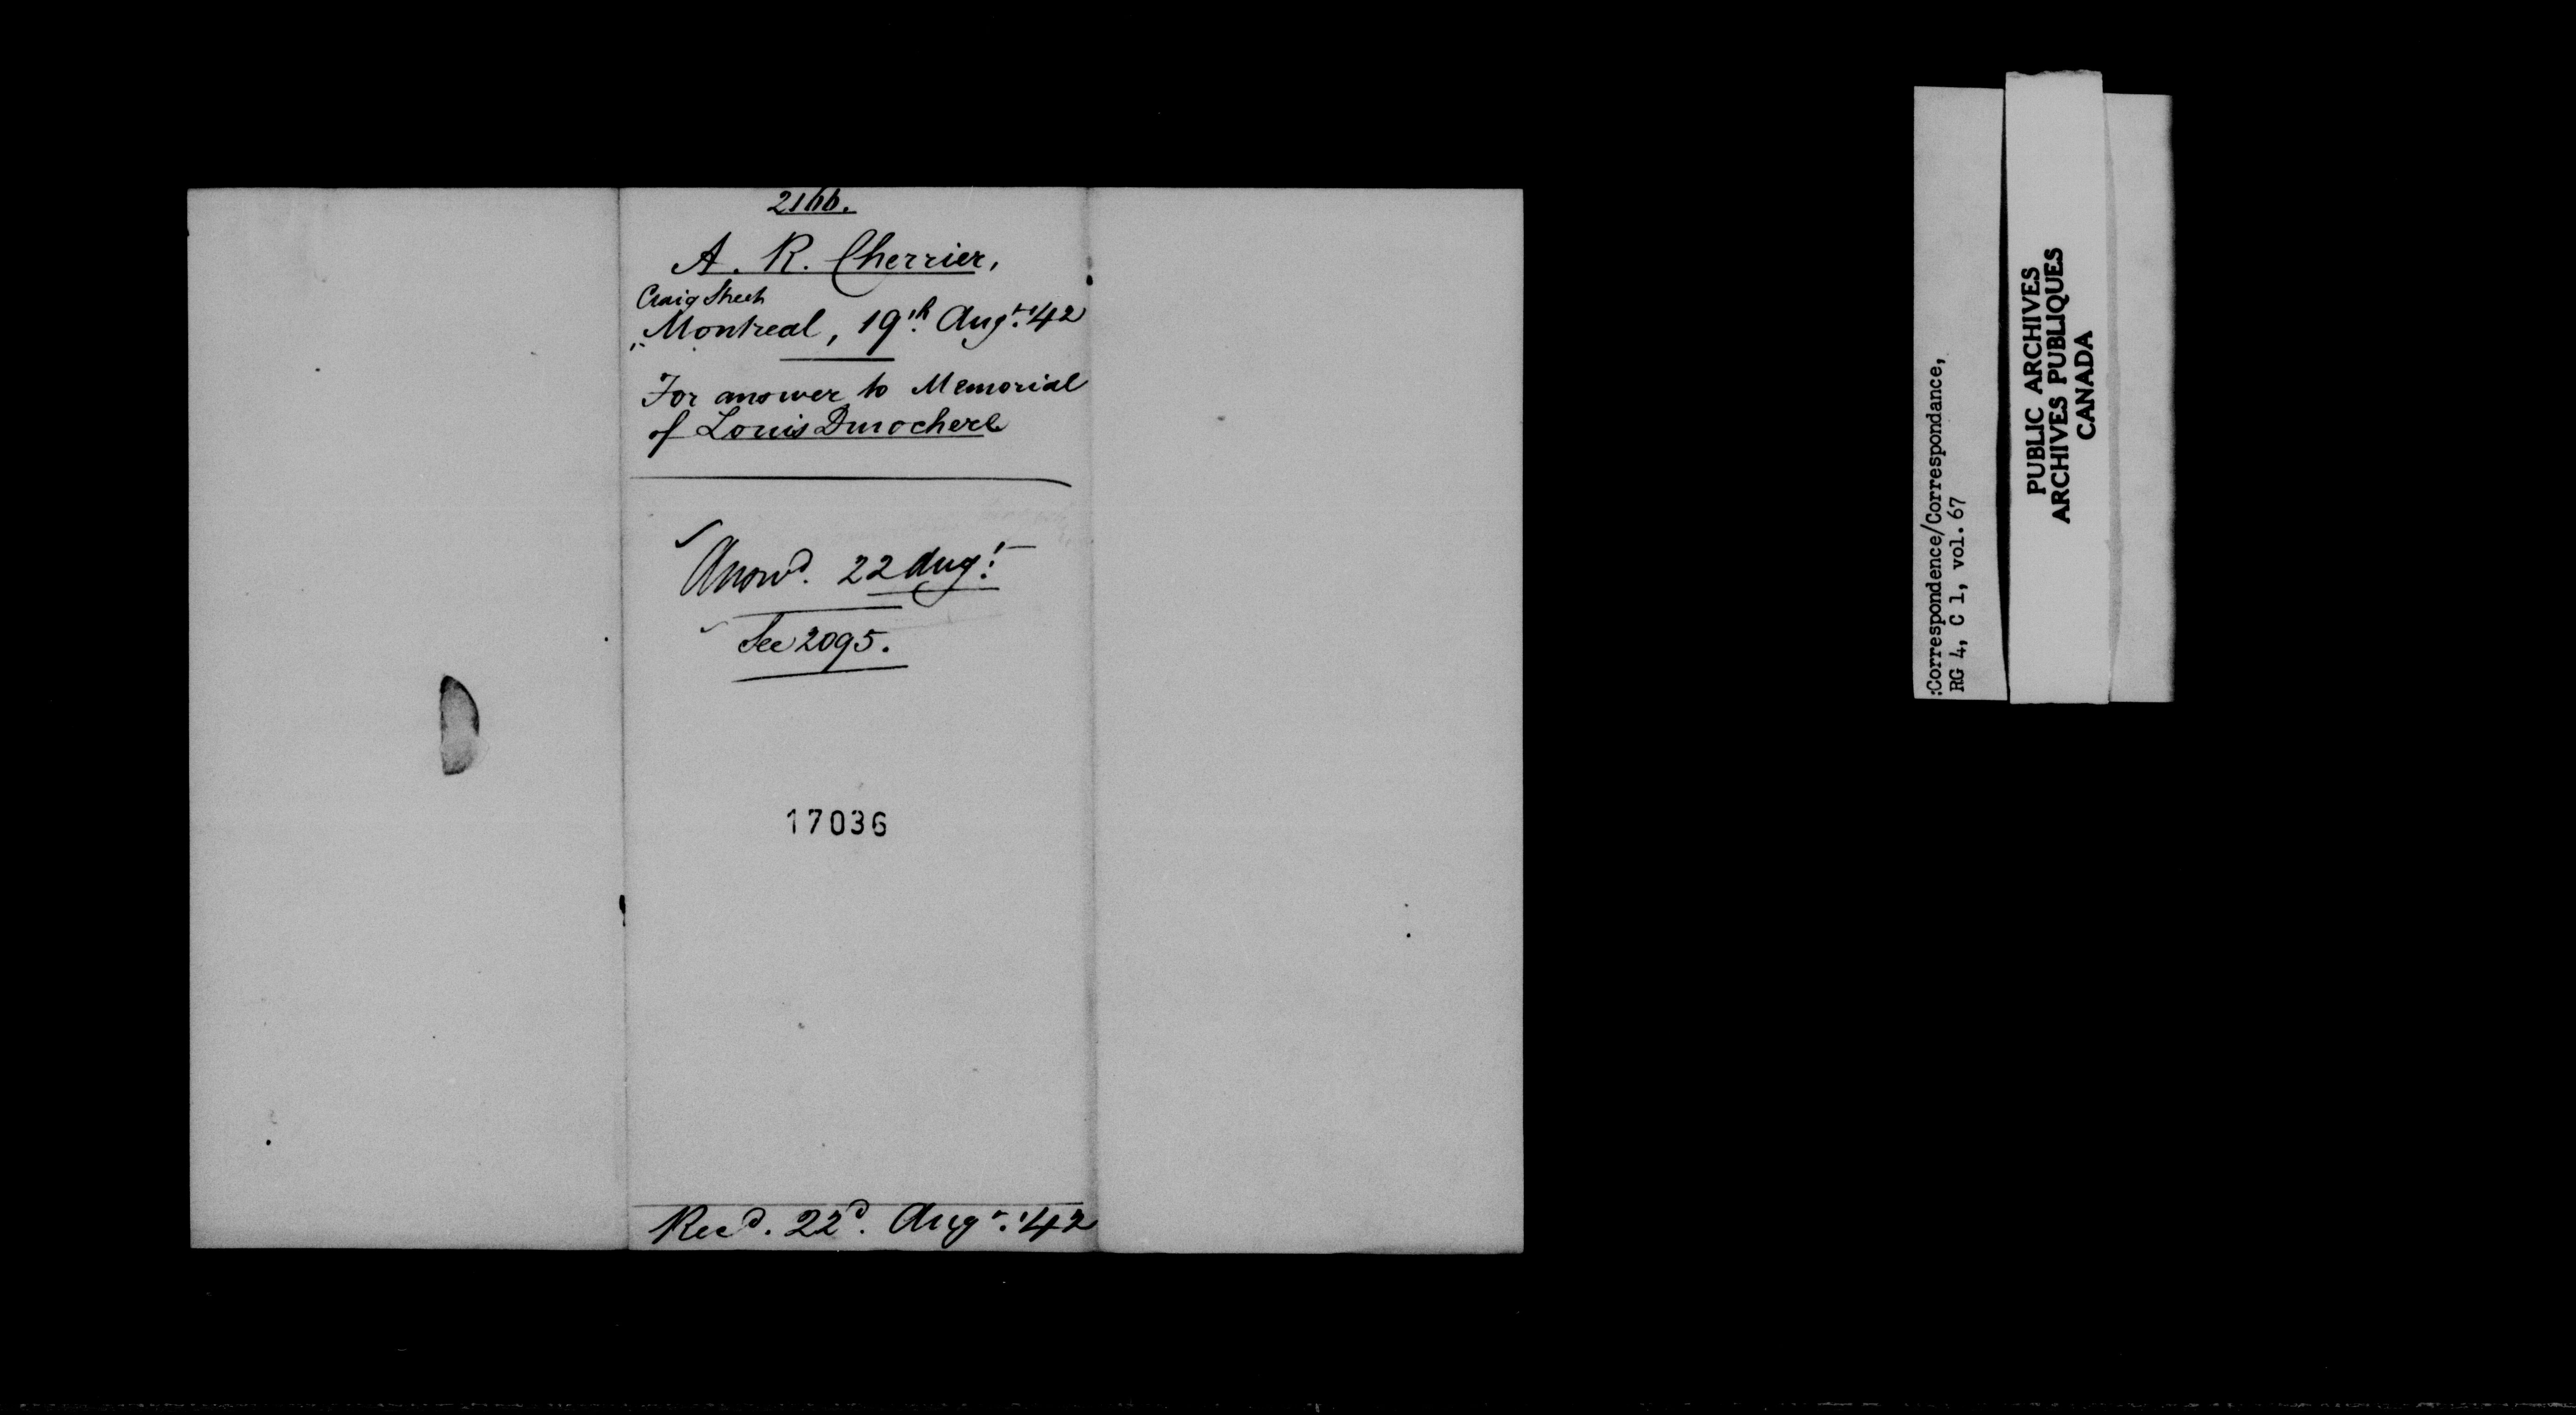 2166.
A. R. Cherrier,
Craig Street
Montreal, 19th. Augt. '42
For answer to Memorial
of Louis Durocher
Answd. 22 Augt.
See 2095.
17036
Recd. 22d. Augt. '42
:Correspondence/Correspondance,
RG 4, C 1, vol. 67
PUBLIC ARCHIVES
ARCHIVES PUBLIQUES
CANADA